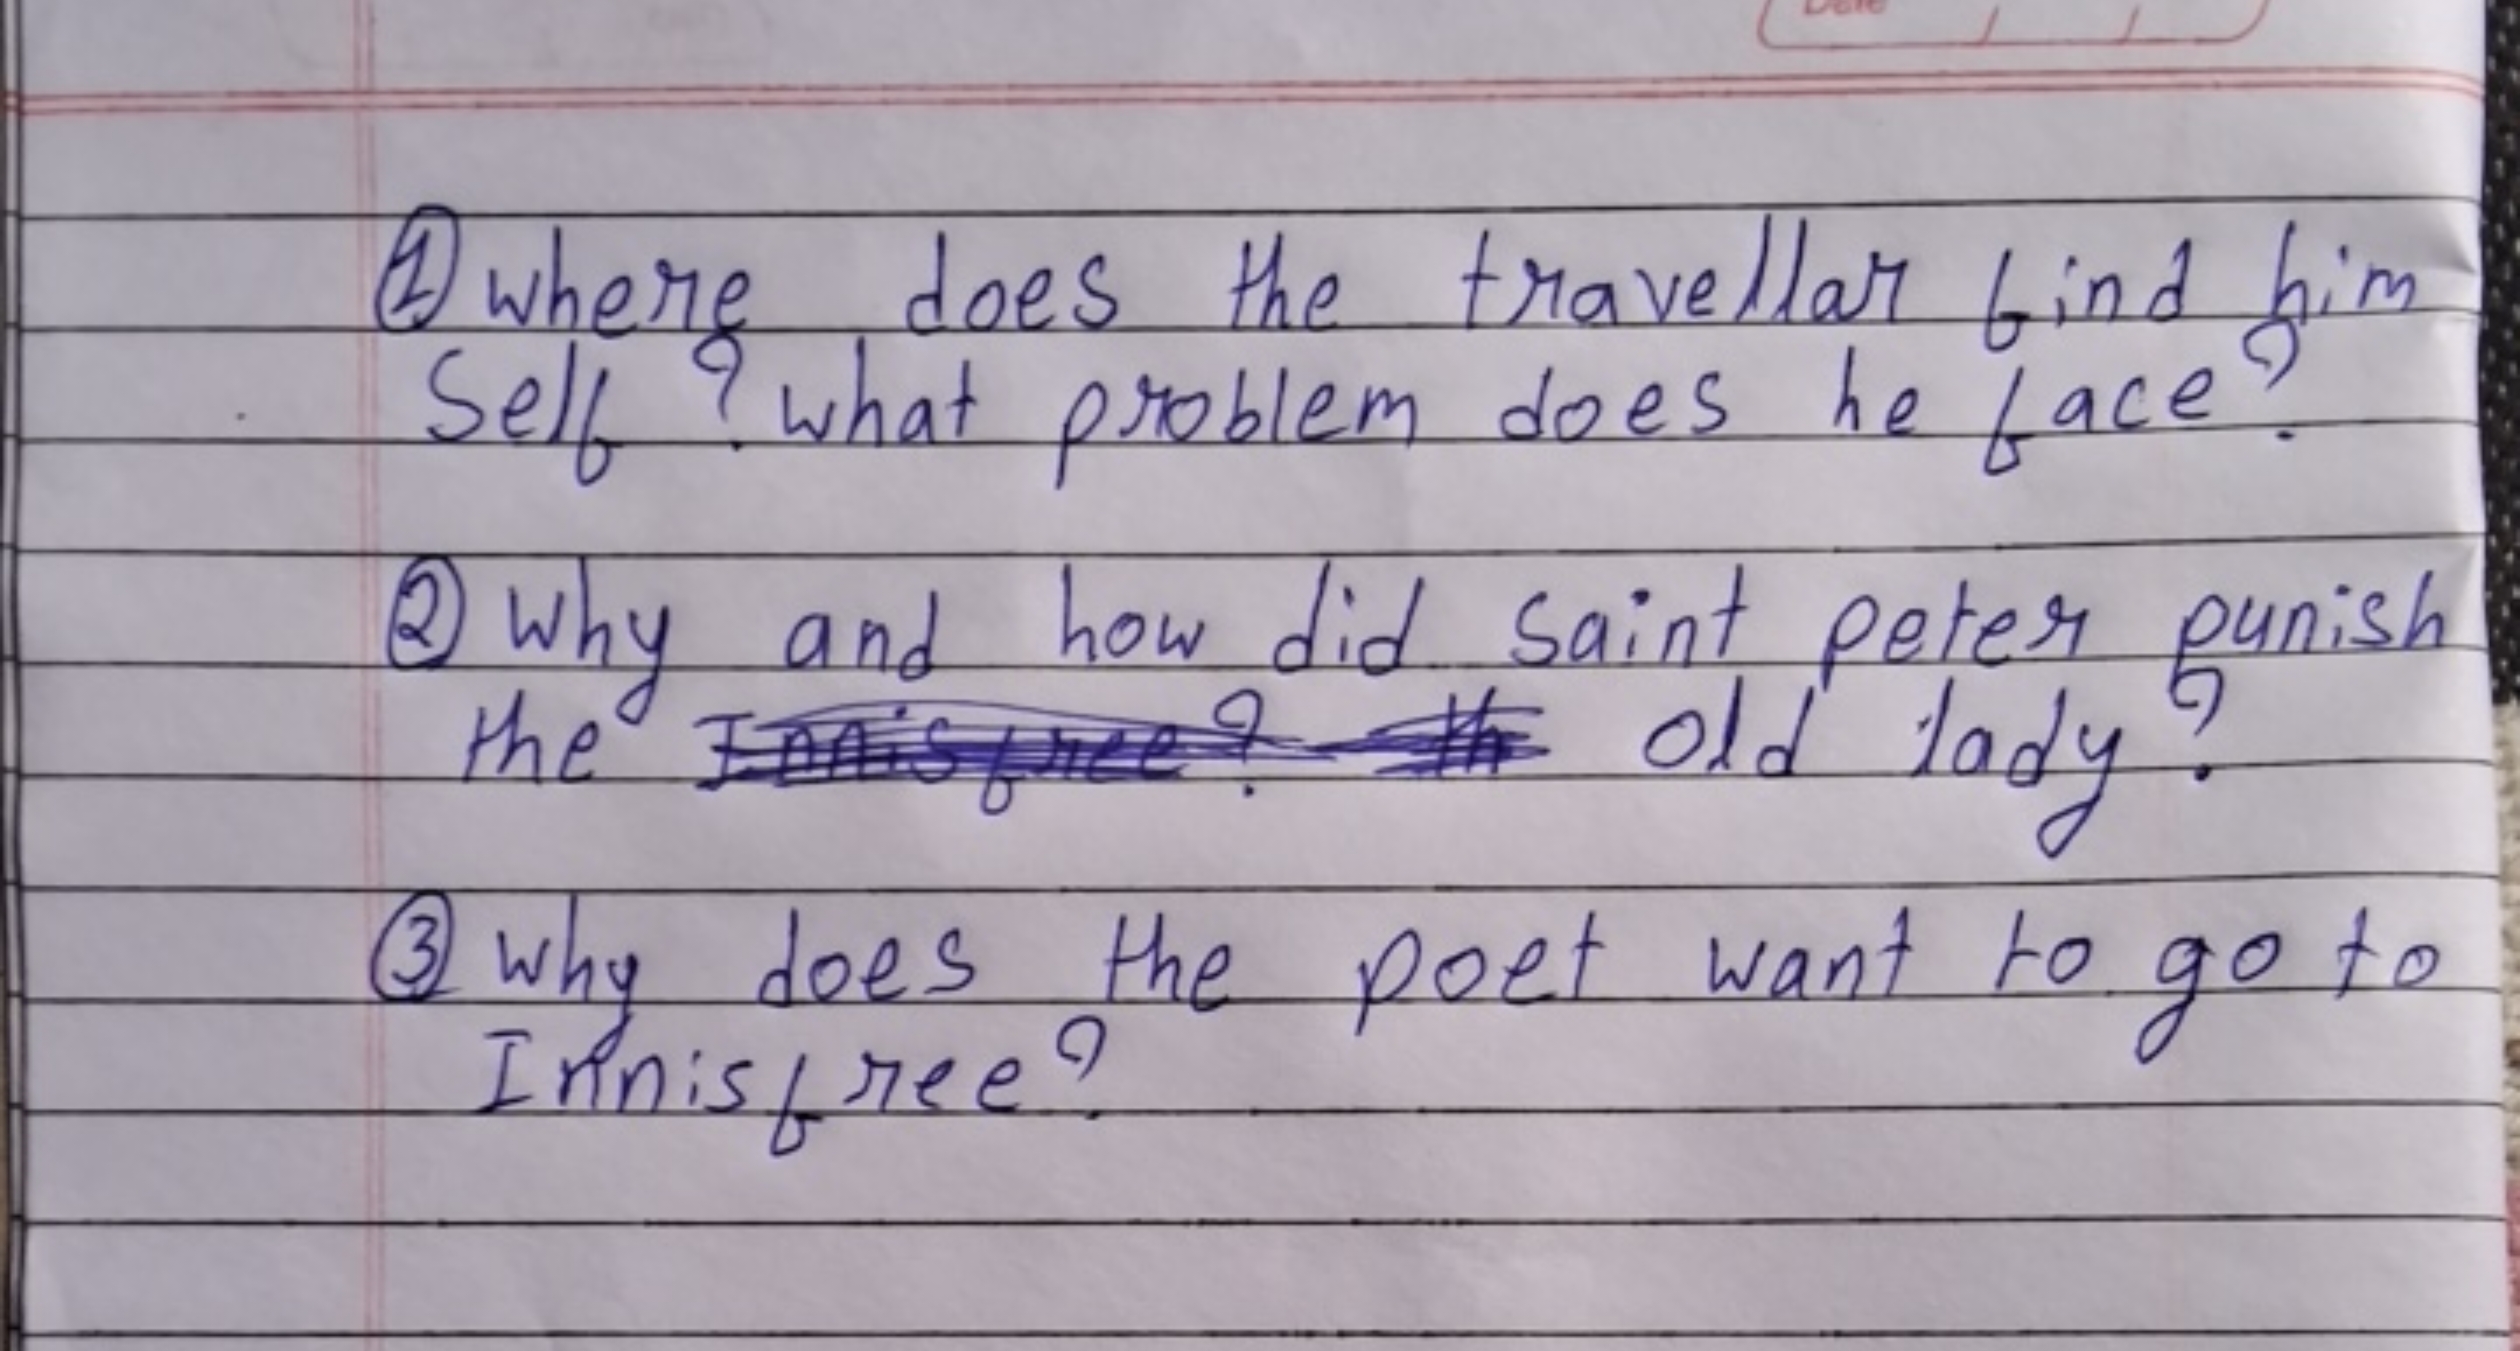 Date / /
① where does the travellar find him
Self ? what problem does he face?
② Why and how did saint peter punish
the Innisfree? th old lady?
③ why does the poet want to go to
Innisfree?